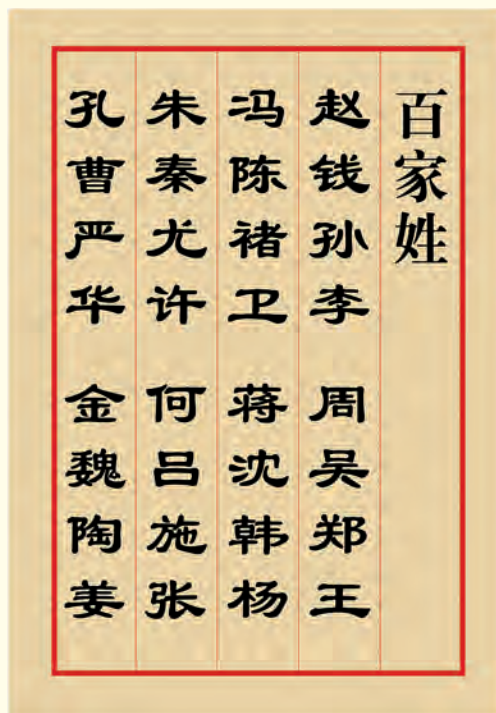 百家姓
赵钱孙李 周吴郑王
冯陈褚卫 蒋沈韩杨
朱秦尤许 何吕施张
孔曹严华 金魏陶姜